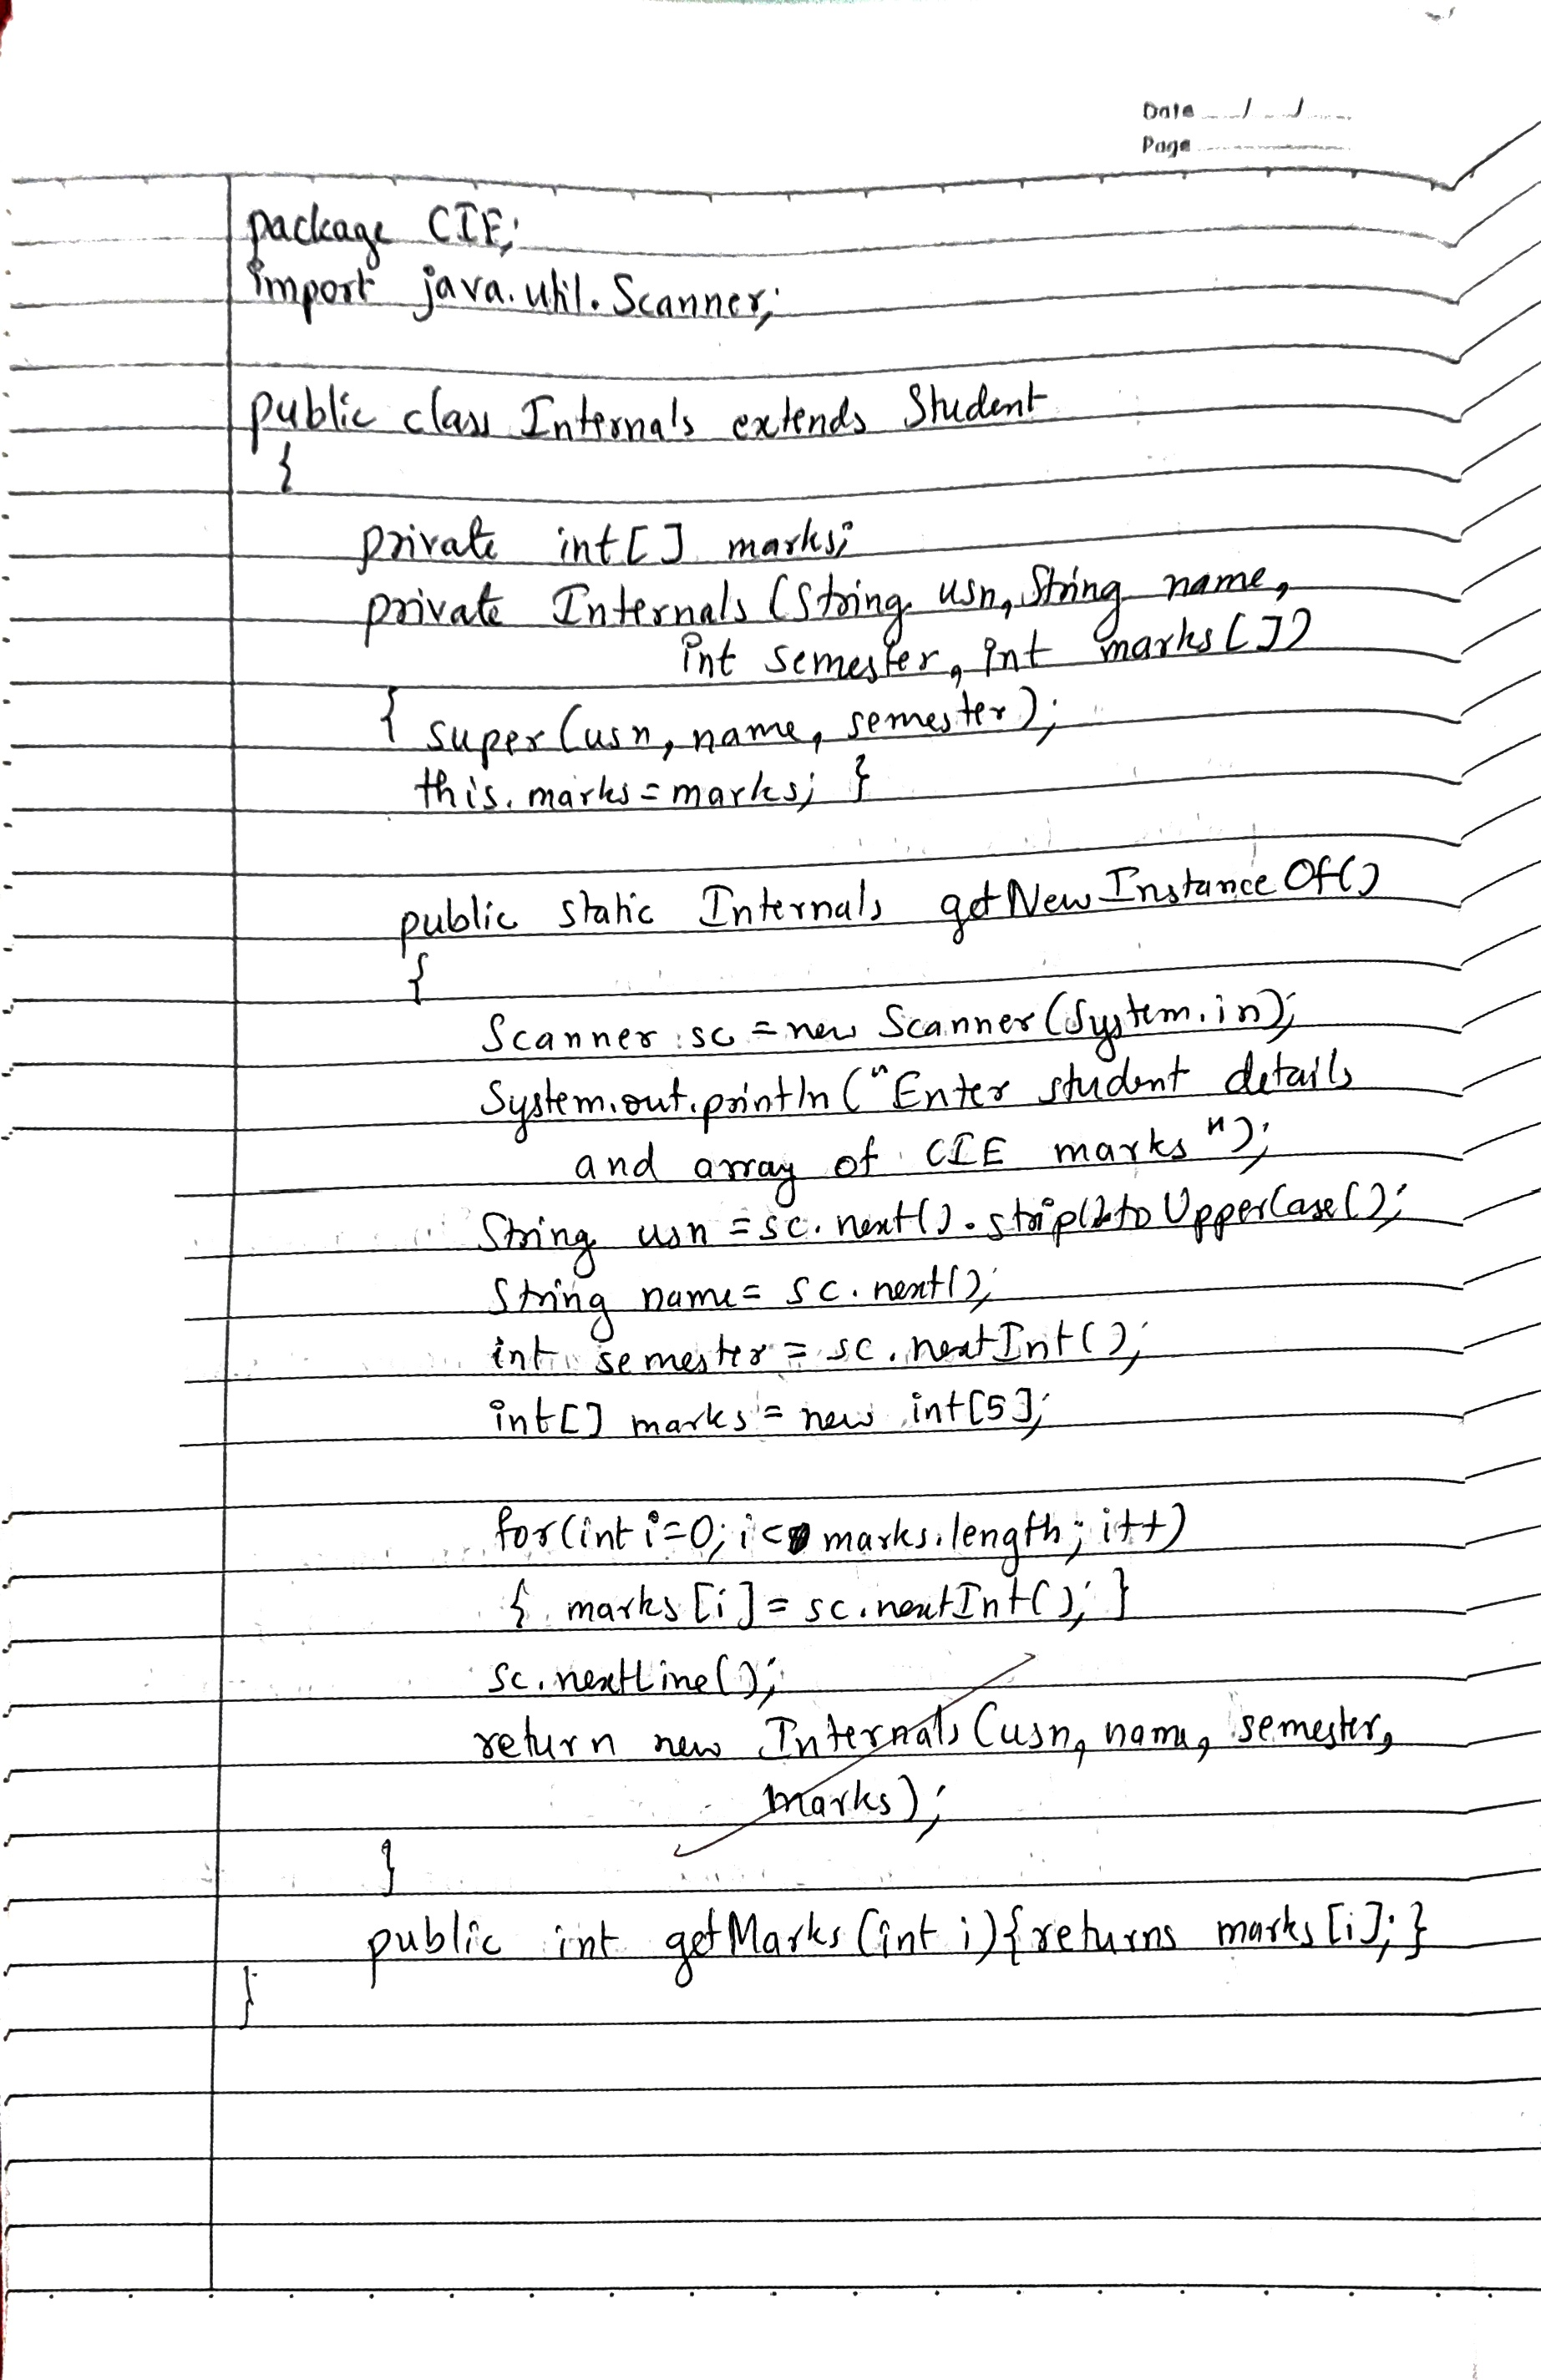 Date / /
Page
package CIE;
import java.util.Scanner;
public class Internals extends Student
{
private int[] marks;
private Internals (String usn, String name,
int semester, int marks[])
{ super(usn, name, semester);
this.marks = marks; }
public static Internals getNewInstanceOf()
{
Scanner sc = new Scanner(System.in);
System.out.println("Enter student details
and array of CIE marks");
String usn = sc.next().strip().toUpperCase();
String name = sc.next();
int semester = sc.nextInt();
int[] marks = new int[5];
for(int i=0; i< marks.length; i++)
{ marks[i] = sc.nextInt(); }
sc.nextLine();
return new Internals(usn, name, semester,
marks);
}
public int getMarks(int i){returns marks[i];}
}